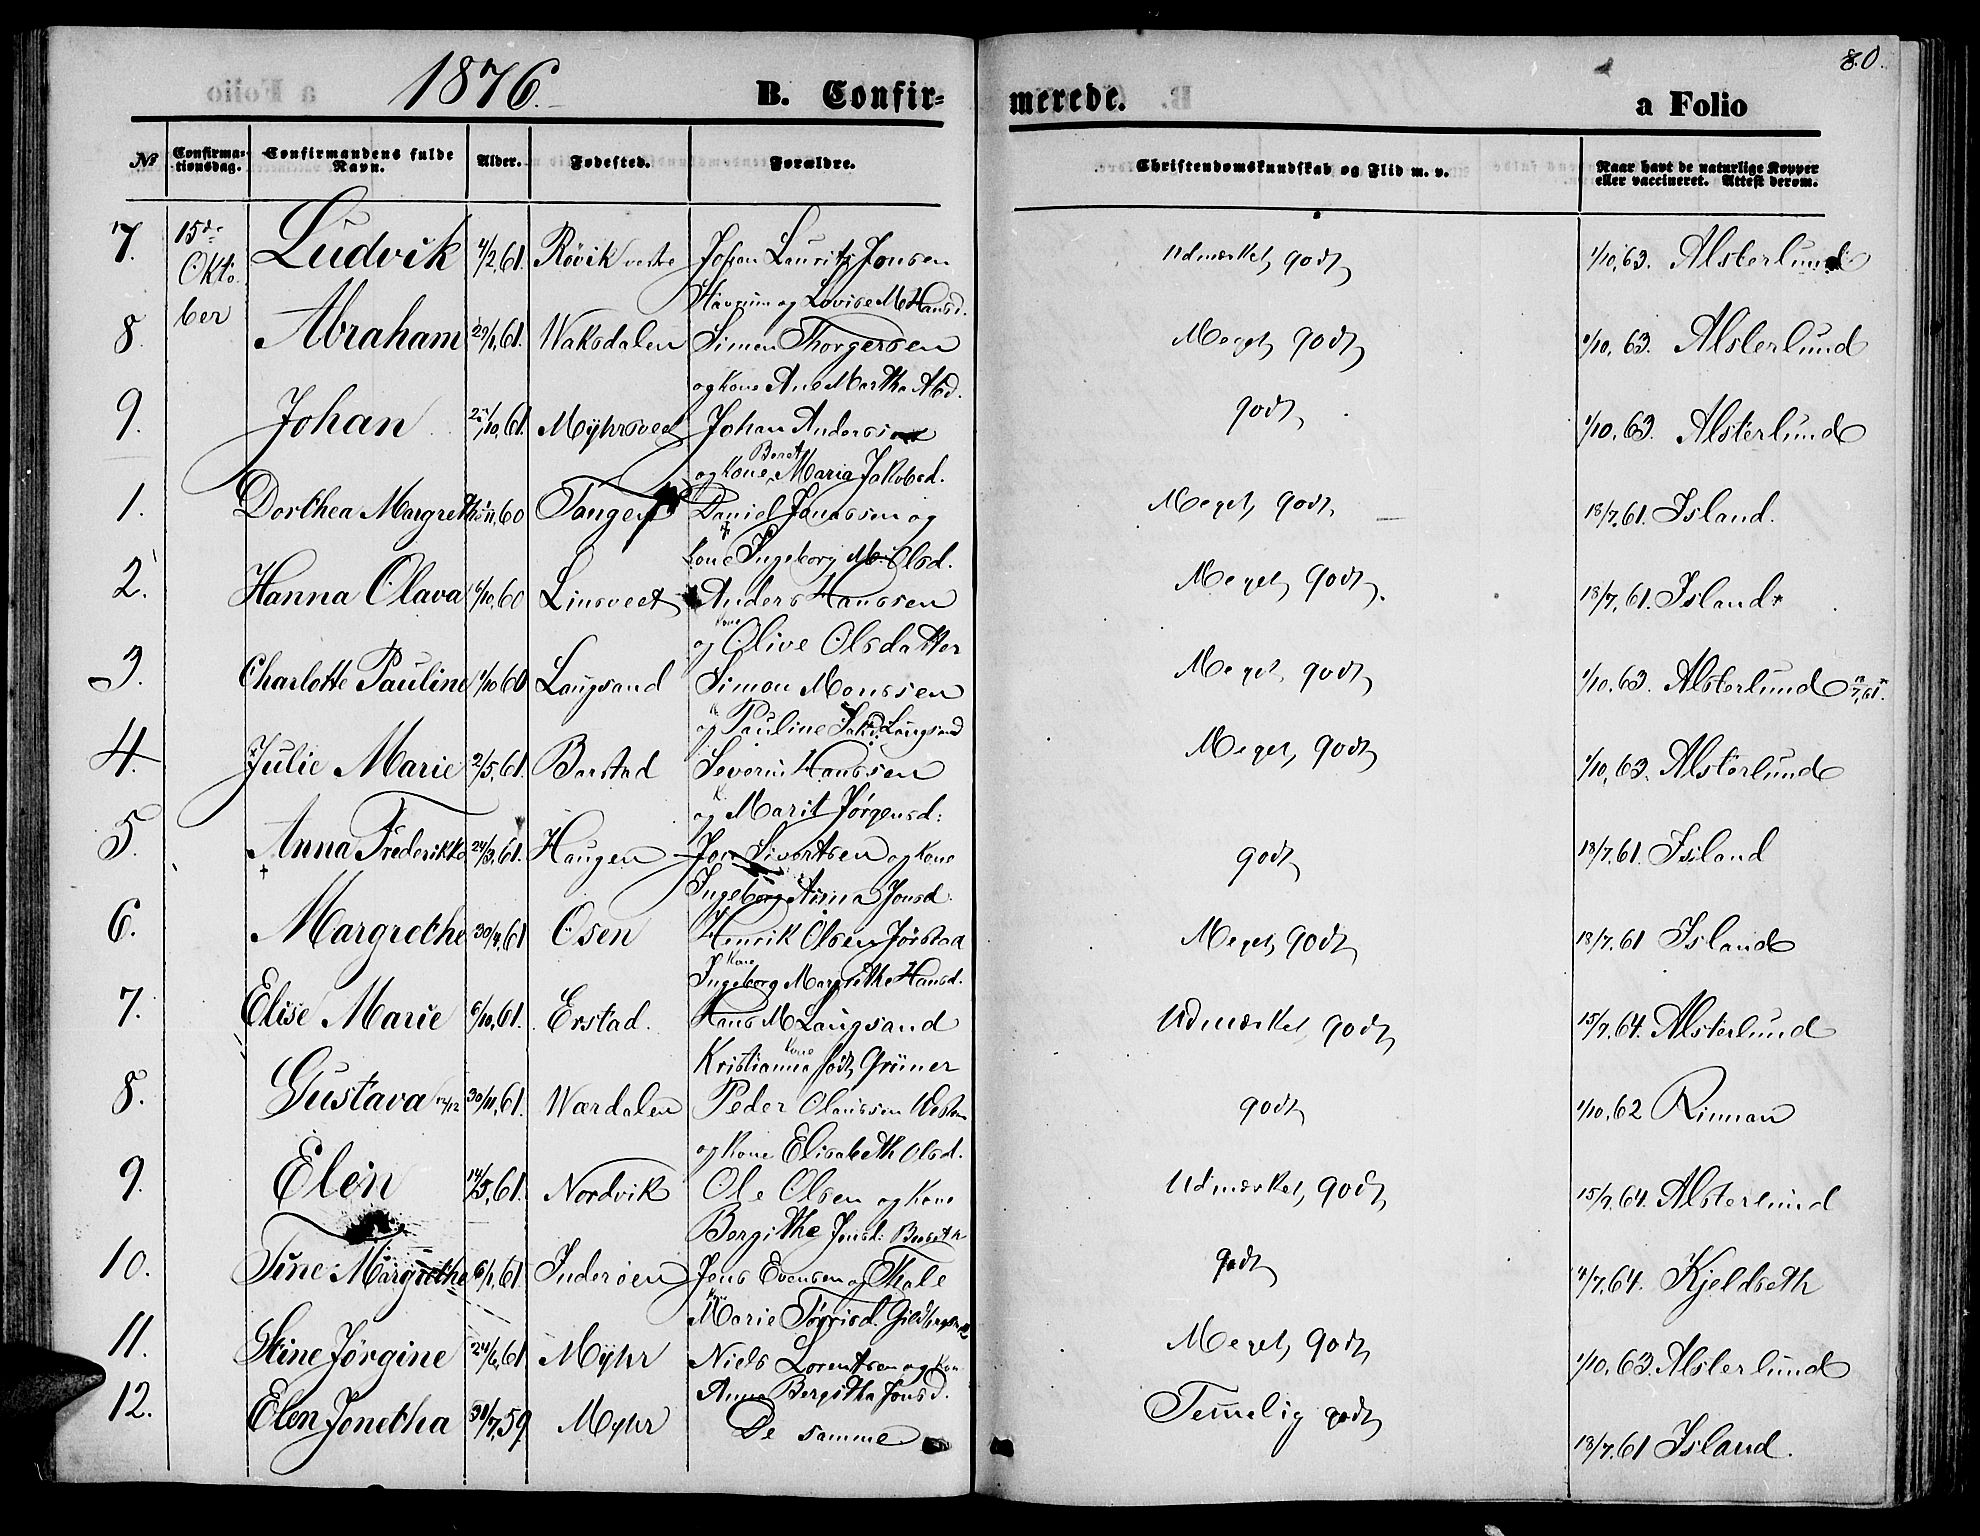 1876.
B. Confir=
merede.
a Folio
80.
No
Confirma-
tionsdag.
Confirmandens fulde
Navn.
Alder.
Fødested.
Forældre.
Christendomskundskab og Flid m. v.
Naar havt de naturlige Kopper
eller vaccineret. Attest derom.
7. 15de Ludvik 4/2,61. Røvik vestre Johan Lauritz Jonsen Udmærket godt 1/10,63. Alsterlund
Okto-
ber og Lovise M Hansd.
8. Abraham 29/1,61. Waksdalen Simon Thorgersen Meget godt 1/10,63. Alsterlund
og Kone Ane Martha Abd.
9. Johan /10,61. Myhrsveet Johan Anderssen godt 1/10,63. Alsterlund
Beret
og Kone Maria Jakobsd.
1. Dorthea Margreth /11,60 Tangen Daniel Jonassen og Meget godt 18/7,61. Island.
Kone Ingeborg M. Olsd.
2. Hanna Olava /10,60 Linsveet Anders Hanssen Meget godt. 18/7,61. Island
Kone
og Olive Olsdatter
3. Charlotte Pauline /10 60 Langsand Simon Monssen Meget godt 1/10,63. Alsterlund 18/7,61.
og Pauline Langsand
4. Julie Marie 2/5,61. Barstad Severin Hanssen Meget godt 1/10,63. Alsterlund
K
og Marit Jørgensd:
5. Anna Frederikke 24/3,61. Haugen Jon Sivertsen og Kone godt 18/7,61. Island
Ingeborg Anna Jonsd.
6. Margrethe 30/4,61 Osen Henrik Olsen Jørstad Meget godt 18/7,61 Island
Kone
Ingeborg Margrethe Hansd.
7. Elise Marie 6/10,61. Erstad. Hans M Langsand Udmærket godt 15/7,64. Alsterlund
Kone
Kristianna født Grüner
8. Gustava 30/11,61. Wærdalen Peder Olaussen godt 1/10,62 Rinnan
og Kone Elisabeth Olsd.
9. Elen 14/5,61. Nordvik Ole Olsen og Kone Udmærket godt 15/7,64. Alsterlund
Bergithe Jonsd:
10. Tine Margrethe 6/1,61 Inderøen Jens Evensen og Thale godt 4/7,64. Kjeldseth
Marie
11. Stine Jørgine 24/6,61 Myhr Niels Lorentsen og Kone Meget godt 1/10,63 Alsterlund
Anna Bergitha Jonsd.
12. Elen Jonetha 31/7,59 Myhr De samme Temmelig godt 18/7,61 Island.